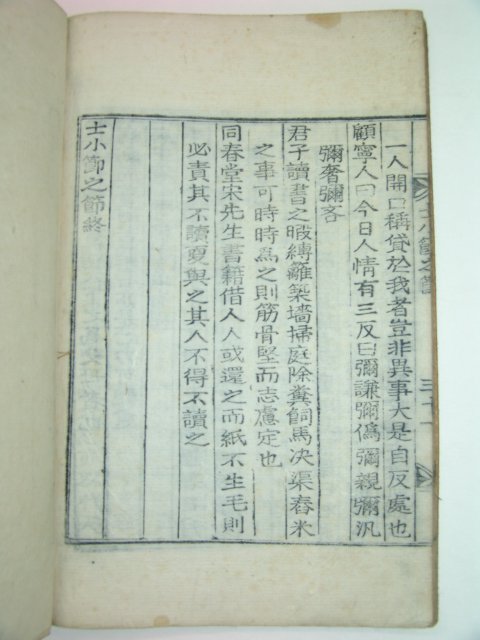 一人開口稱貸於我者豈非異事大是自反處也
顧寧人曰今日人情有三反曰彌謙彌僞彌親彌汎
彌奢彌吝
君子讀書之暇縛籬築墻掃庭除糞飼馬决渠舂米
之事可時時為之則筋骨堅而志慮定也
同春堂宋先生書籍借人人或還之而紙不生毛則
必責其不讀更與之其人不得不讀之
士小節之節終
士小節之節